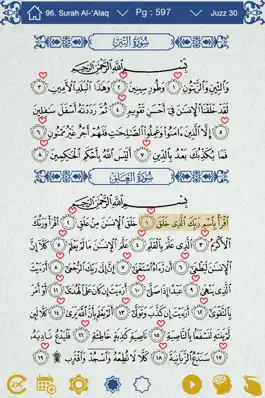 96. Surah Al-'Alaq Pg : 597 Juzz 30
سُورَةُ التِّينِ
بِسْمِ اللَّهِ الرَّحْمَٰنِ الرَّحِيمِ
وَالتِّينِ وَالزَّيْتُونِ ١ وَطُورِ سِينِينَ ٢ وَهَٰذَا الْبَلَدِ الْأَمِينِ ٣
لَقَدْ خَلَقْنَا الْإِنسَٰنَ فِي أَحْسَنِ تَقْوِيمٍ ٤ ثُمَّ رَدَدْنَٰهُ أَسْفَلَ سَٰفِلِينَ
٥ إِلَّا الَّذِينَ ءَامَنُوا وَعَمِلُوا الصَّٰلِحَٰتِ فَلَهُمْ أَجْرٌ غَيْرُ مَمْنُونٍ
٦ فَمَا يُكَذِّبُكَ بَعْدُ بِالدِّينِ ٧ أَلَيْسَ اللَّهُ بِأَحْكَمِ الْحَٰكِمِينَ ٨
سُورَةُ الْعَلَقِ
بِسْمِ اللَّهِ الرَّحْمَٰنِ الرَّحِيمِ
اقْرَأْ بِاسْمِ رَبِّكَ الَّذِي خَلَقَ ١ خَلَقَ الْإِنسَٰنَ مِنْ عَلَقٍ ٢ اقْرَأْ وَرَبُّكَ
الْأَكْرَمُ ٣ الَّذِي عَلَّمَ بِالْقَلَمِ ٤ عَلَّمَ الْإِنسَٰنَ مَا لَمْ يَعْلَمْ ٥ كَلَّا إِنَّ
الْإِنسَٰنَ لَيَطْغَىٰ ٦ أَن رَّءَاهُ اسْتَغْنَىٰ ٧ إِنَّ إِلَىٰ رَبِّكَ الرُّجْعَىٰ ٨ أَرَءَيْتَ
الَّذِي يَنْهَىٰ ٩ عَبْدًا إِذَا صَلَّىٰ ١٠ أَرَءَيْتَ إِن كَانَ عَلَى الْهُدَىٰ ١١ أَوْ أَمَرَ
بِالتَّقْوَىٰ ١٢ أَرَءَيْتَ إِن كَذَّبَ وَتَوَلَّىٰ ١٣ أَلَمْ يَعْلَم بِأَنَّ اللَّهَ يَرَىٰ ١٤ كَلَّا لَئِن
لَّمْ يَنتَهِ لَنَسْفَعًا بِالنَّاصِيَةِ ١٥ نَاصِيَةٍ كَٰذِبَةٍ خَاطِئَةٍ ١٦ فَلْيَدْعُ نَادِيَهُ
١٧ سَنَدْعُ الزَّبَانِيَةَ ١٨ كَلَّا لَا تُطِعْهُ وَاسْجُدْ وَاقْتَرِب ١٩